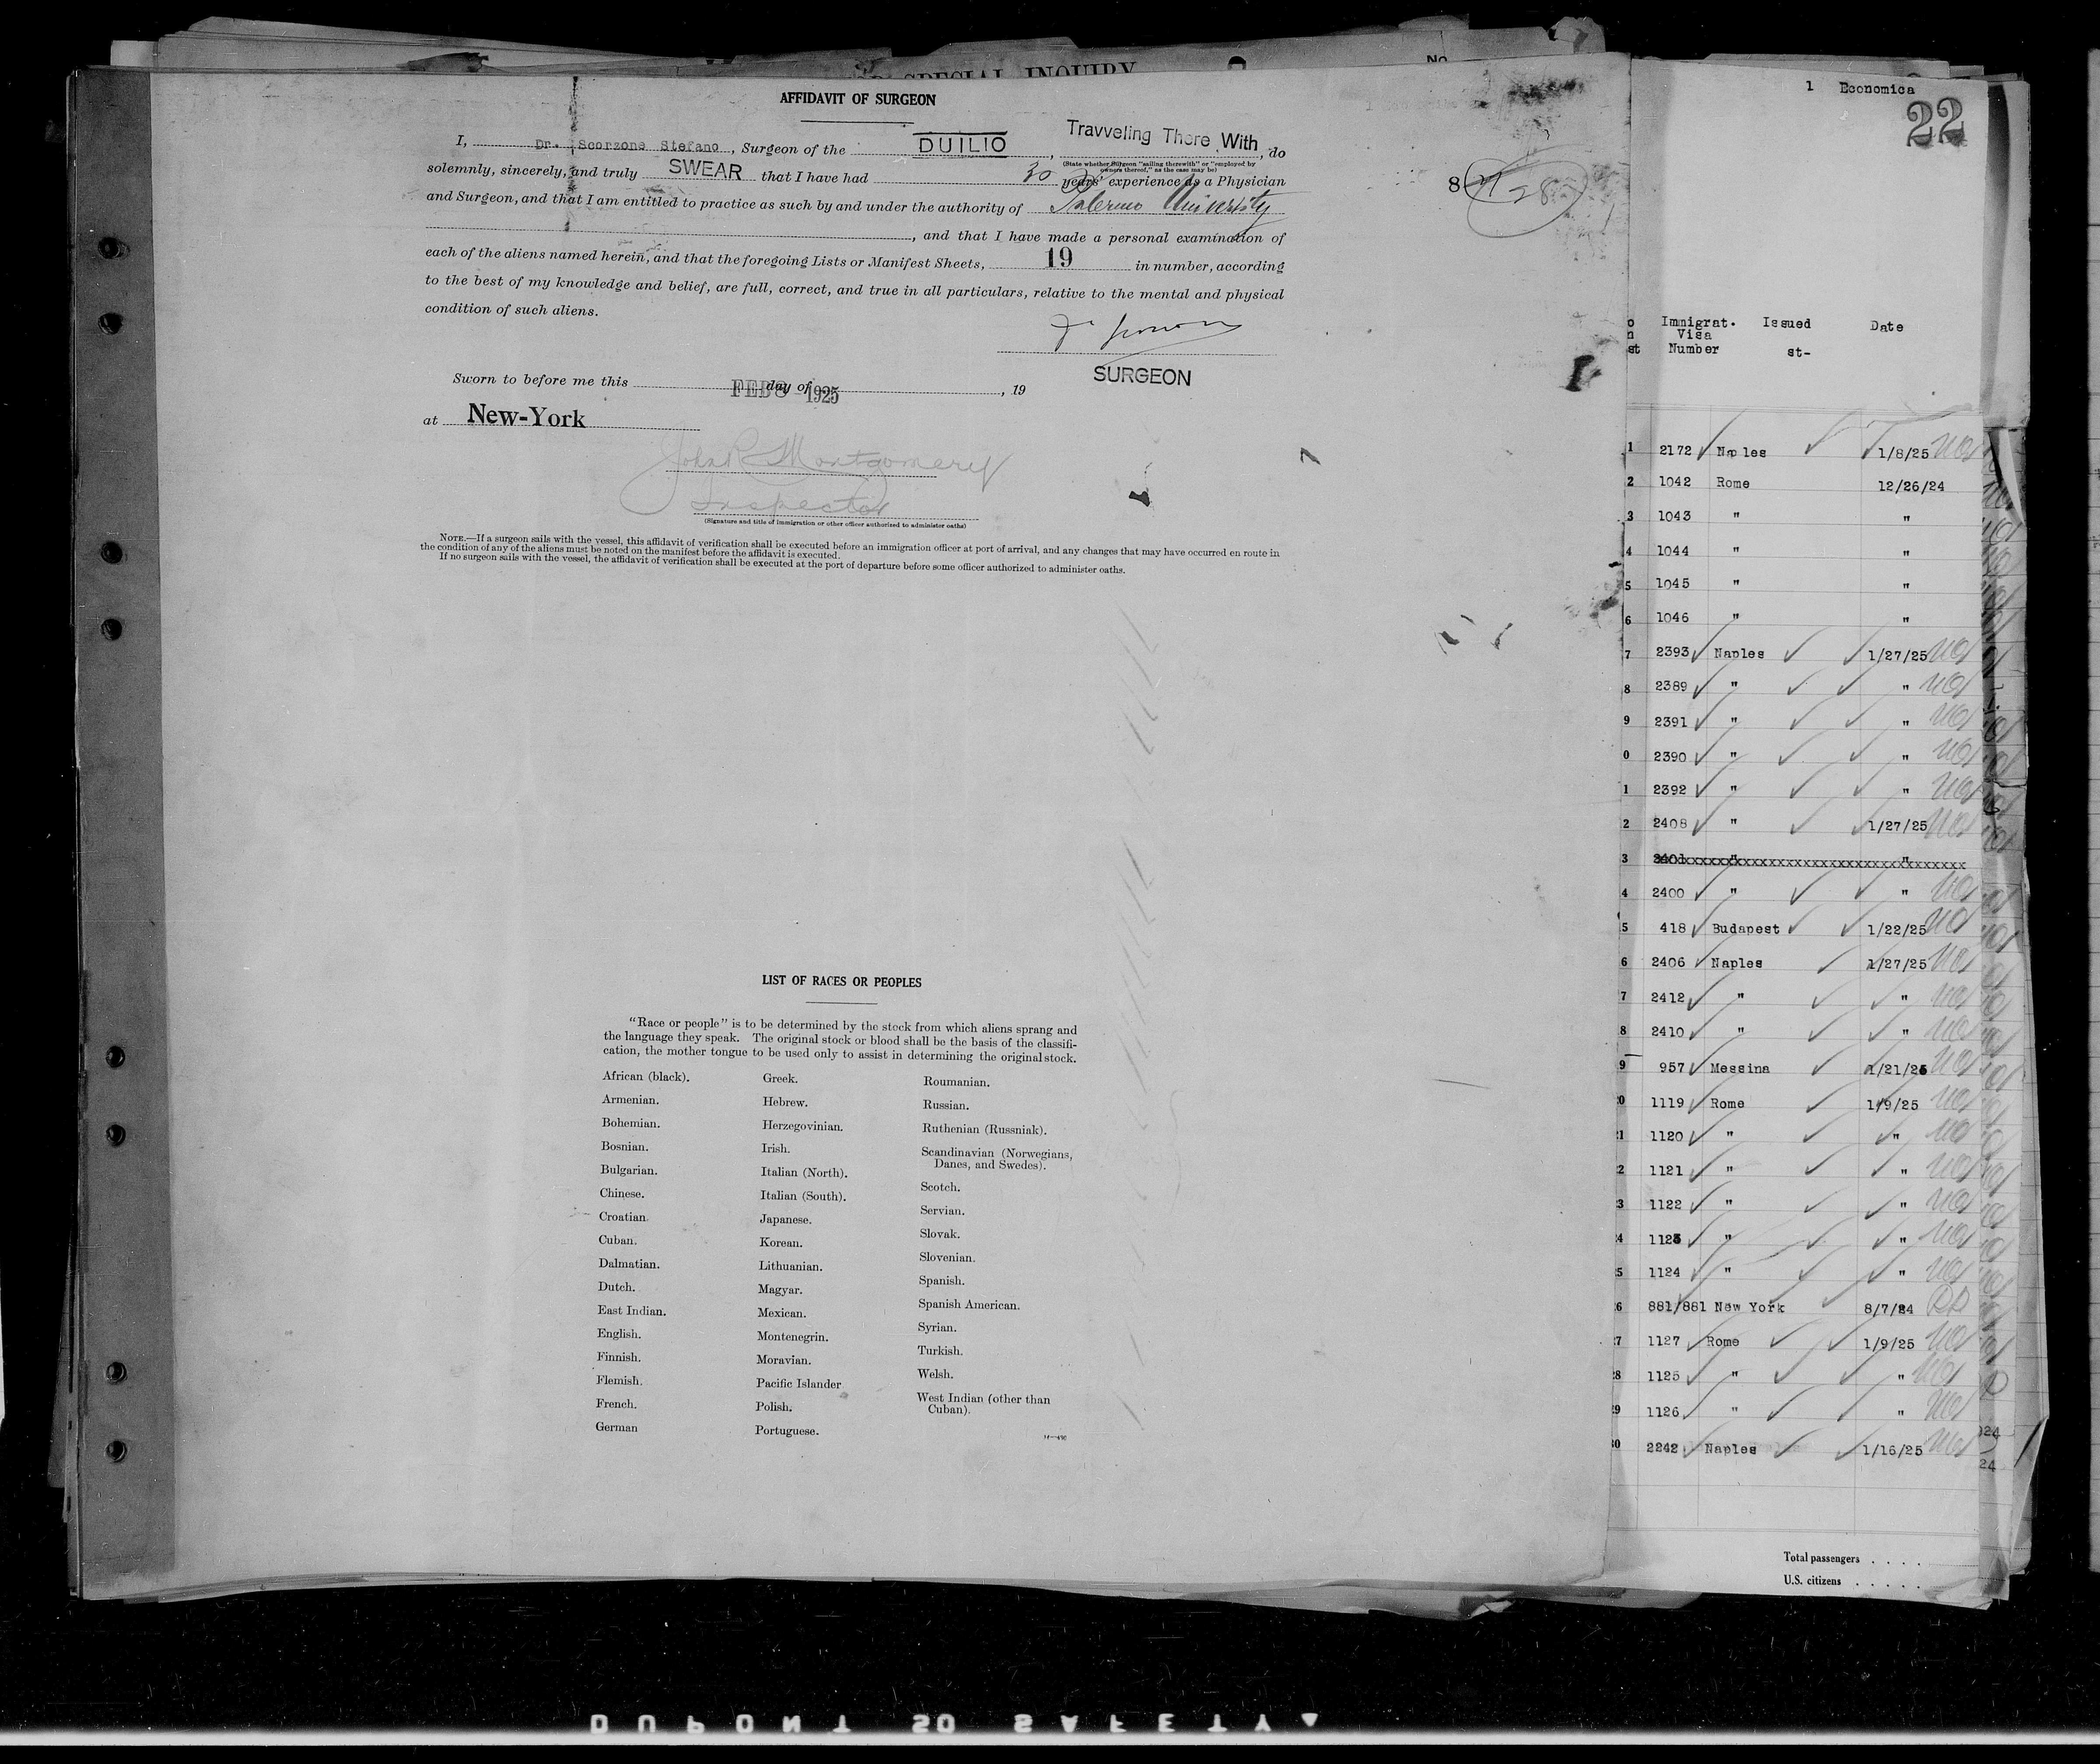 SPECIAL INQUIRY
No
AFFIDAVIT OF SURGEON
I, Dr. Scorzone Stefano, Surgeon of the DUILIO, Travveling There With, do
(State whether Surgeon "sailing therewith" or "employed by
owners thereof," as the case may be)
solemnly, sincerely, and truly SWEAR that I have had 30 years' experience as a Physician
and Surgeon, and that I am entitled to practice as such by and under the authority of Palermo University
, and that I have made a personal examination of
each of the aliens named herein, and that the foregoing Lists or Manifest Sheets, 19 in number, according
to the best of my knowledge and belief, are full, correct, and true in all particulars, relative to the mental and physical
condition of such aliens.
SURGEON
Sworn to before me this FEB 8 1925 day of , 19
at New-York
John R Montgomery
Inspector
(Signature and title of immigration or other officer authorized to administer oaths)
NOTE.—If a surgeon sails with the vessel, this affidavit of verification shall be executed before an immigration officer at port of arrival, and any changes that may have occurred en route in
the condition of any of the aliens must be noted on the manifest before the affidavit is executed.
If no surgeon sails with the vessel, the affidavit of verification shall be executed at the port of departure before some officer authorized to administer oaths.
8
LIST OF RACES OR PEOPLES
"Race or people" is to be determined by the stock from which aliens sprang and
the language they speak. The original stock or blood shall be the basis of the classifi-
cation, the mother tongue to be used only to assist in determining the original stock.
African (black).
Armenian.
Bohemian.
Bosnian.
Bulgarian.
Chinese.
Croatian.
Cuban.
Dalmatian.
Dutch.
East Indian.
English.
Finnish.
Flemish.
French.
German
Greek.
Hebrew.
Herzegovinian.
Irish.
Italian (North).
Italian (South).
Japanese.
Korean.
Lithuanian.
Magyar.
Mexican.
Montenegrin.
Moravian.
Pacific Islander
Polish.
Portuguese.
Roumanian.
Russian.
Ruthenian (Russniak).
Scandinavian (Norwegians,
Danes, and Swedes).
Scotch.
Servian.
Slovak.
Slovenian.
Spanish.
Spanish American.
Syrian.
Turkish.
Welsh.
West Indian (other than
Cuban).
1 Economica
22
Immigrat. Issued Date
Visa
Number st-
1 2172 Naples 1/8/25
2 1042 Rome 12/26/24
3 1043 " "
4 1044 " "
5 1045 " "
6 1046 " "
7 2393 Naples 1/27/25
8 2389 " "
9 2391 " "
0 2390 " "
1 2392 " "
2 2408 " 1/27/25
3 2401 " "
4 2400 " "
5 418 Budapest 1/22/25
6 2406 Naples 1/27/25
7 2412 " "
8 2410 " "
9 957 Messina 1/21/25
0 1119 Rome 1/9/25
1 1120 " "
2 1121 " "
3 1122 " "
4 1123 " "
5 1124 " "
6 881/881 New York 8/7/24
7 1127 Rome 1/9/25
8 1125 " "
9 1126 " "
0 2242 Naples 1/16/25
Total passengers . . . .
U.S. citizens . . . . .
DUPONT SO SAFETY